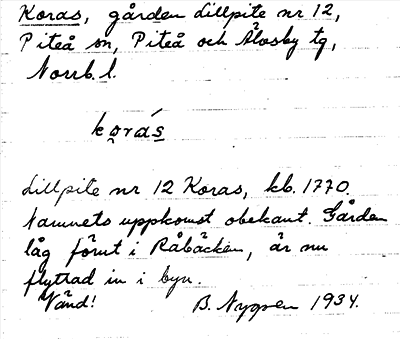 Koras, gården Lillpite nr 12,
Piteå sn, Piteå och Älvsby tg,
Norrb. l.
korás
Lillpite nr 12 Koras, kb. 1770.
Namnets uppkomst obekant. Gården
låg förut i Råbäcken, är nu
flyttad in i byn.
Vänd! B. Nygren 1934.